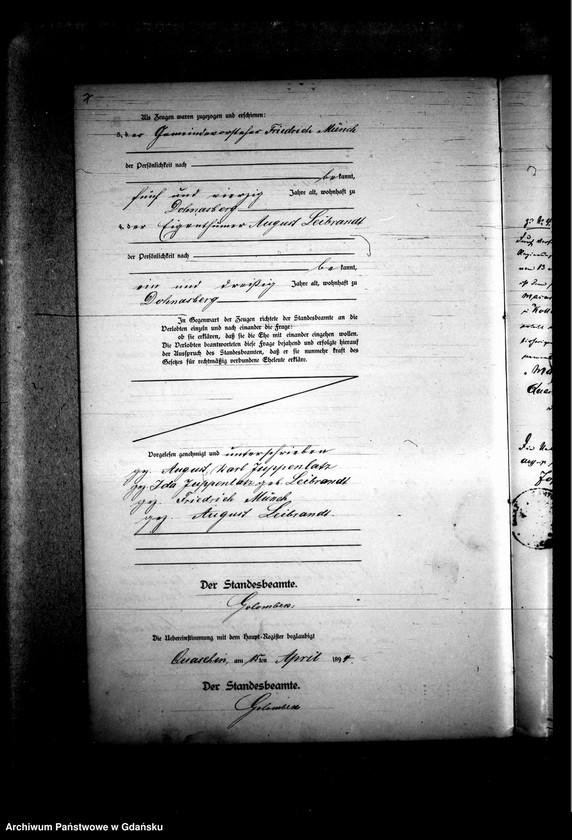 Als Zeugen waren zugezogen und erschienen:
3. der Gemeindevorsteher Friedrich Münch
der Persönlichkeit nach
bekannt,
fünf und vierzig Jahre alt, wohnhaft zu
Dohnasberg
4. der Eigenthümer August Leibrandt
der Persönlichkeit nach
bekannt,
ein und dreißig Jahre alt, wohnhaft zu
Dohnasberg
In Gegenwart der Zeugen richtete der Standesbeamte an die
Verlobten einzeln und nach einander die Frage:
ob sie erklären, daß sie die Ehe mit einander eingehen wollen.
Die Verlobten beantworteten diese Frage bejahend und erfolgte hierauf
der Ausspruch des Standesbeamten, daß er sie nunmehr kraft des
Gesetzes für rechtmäßig verbundene Eheleute erkläre.
Vorgelesen genehmigt und unterschrieben
gez. August Karl Juppenlatz
gez. Ida Juppenlatz geb. Leibrandt
gez. Friedrich Münch
gez. August Leibrandt.
Der Standesbeamte.
Golombek.
Die Uebereinstimmung mit dem Haupt-Register beglaubigt
Quaschin, am 15 ten April 1894.
Der Standesbeamte.
Golombek
Archiwum Państwowe w Gdańsku